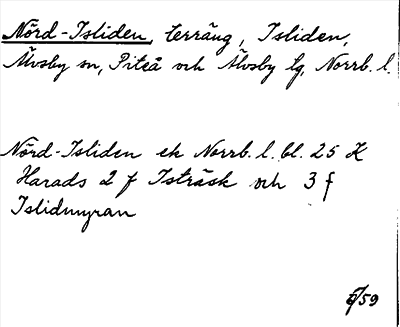 Nörd-Isliden, terräng, Isliden,
Älvsby sn, Piteå och Älvsby tg, Norrb. l.
Nörd-Isliden ek Norrb. l. bl. 25 K
Harads 2 f Isträsk och 3 f
Islidmyran
/59